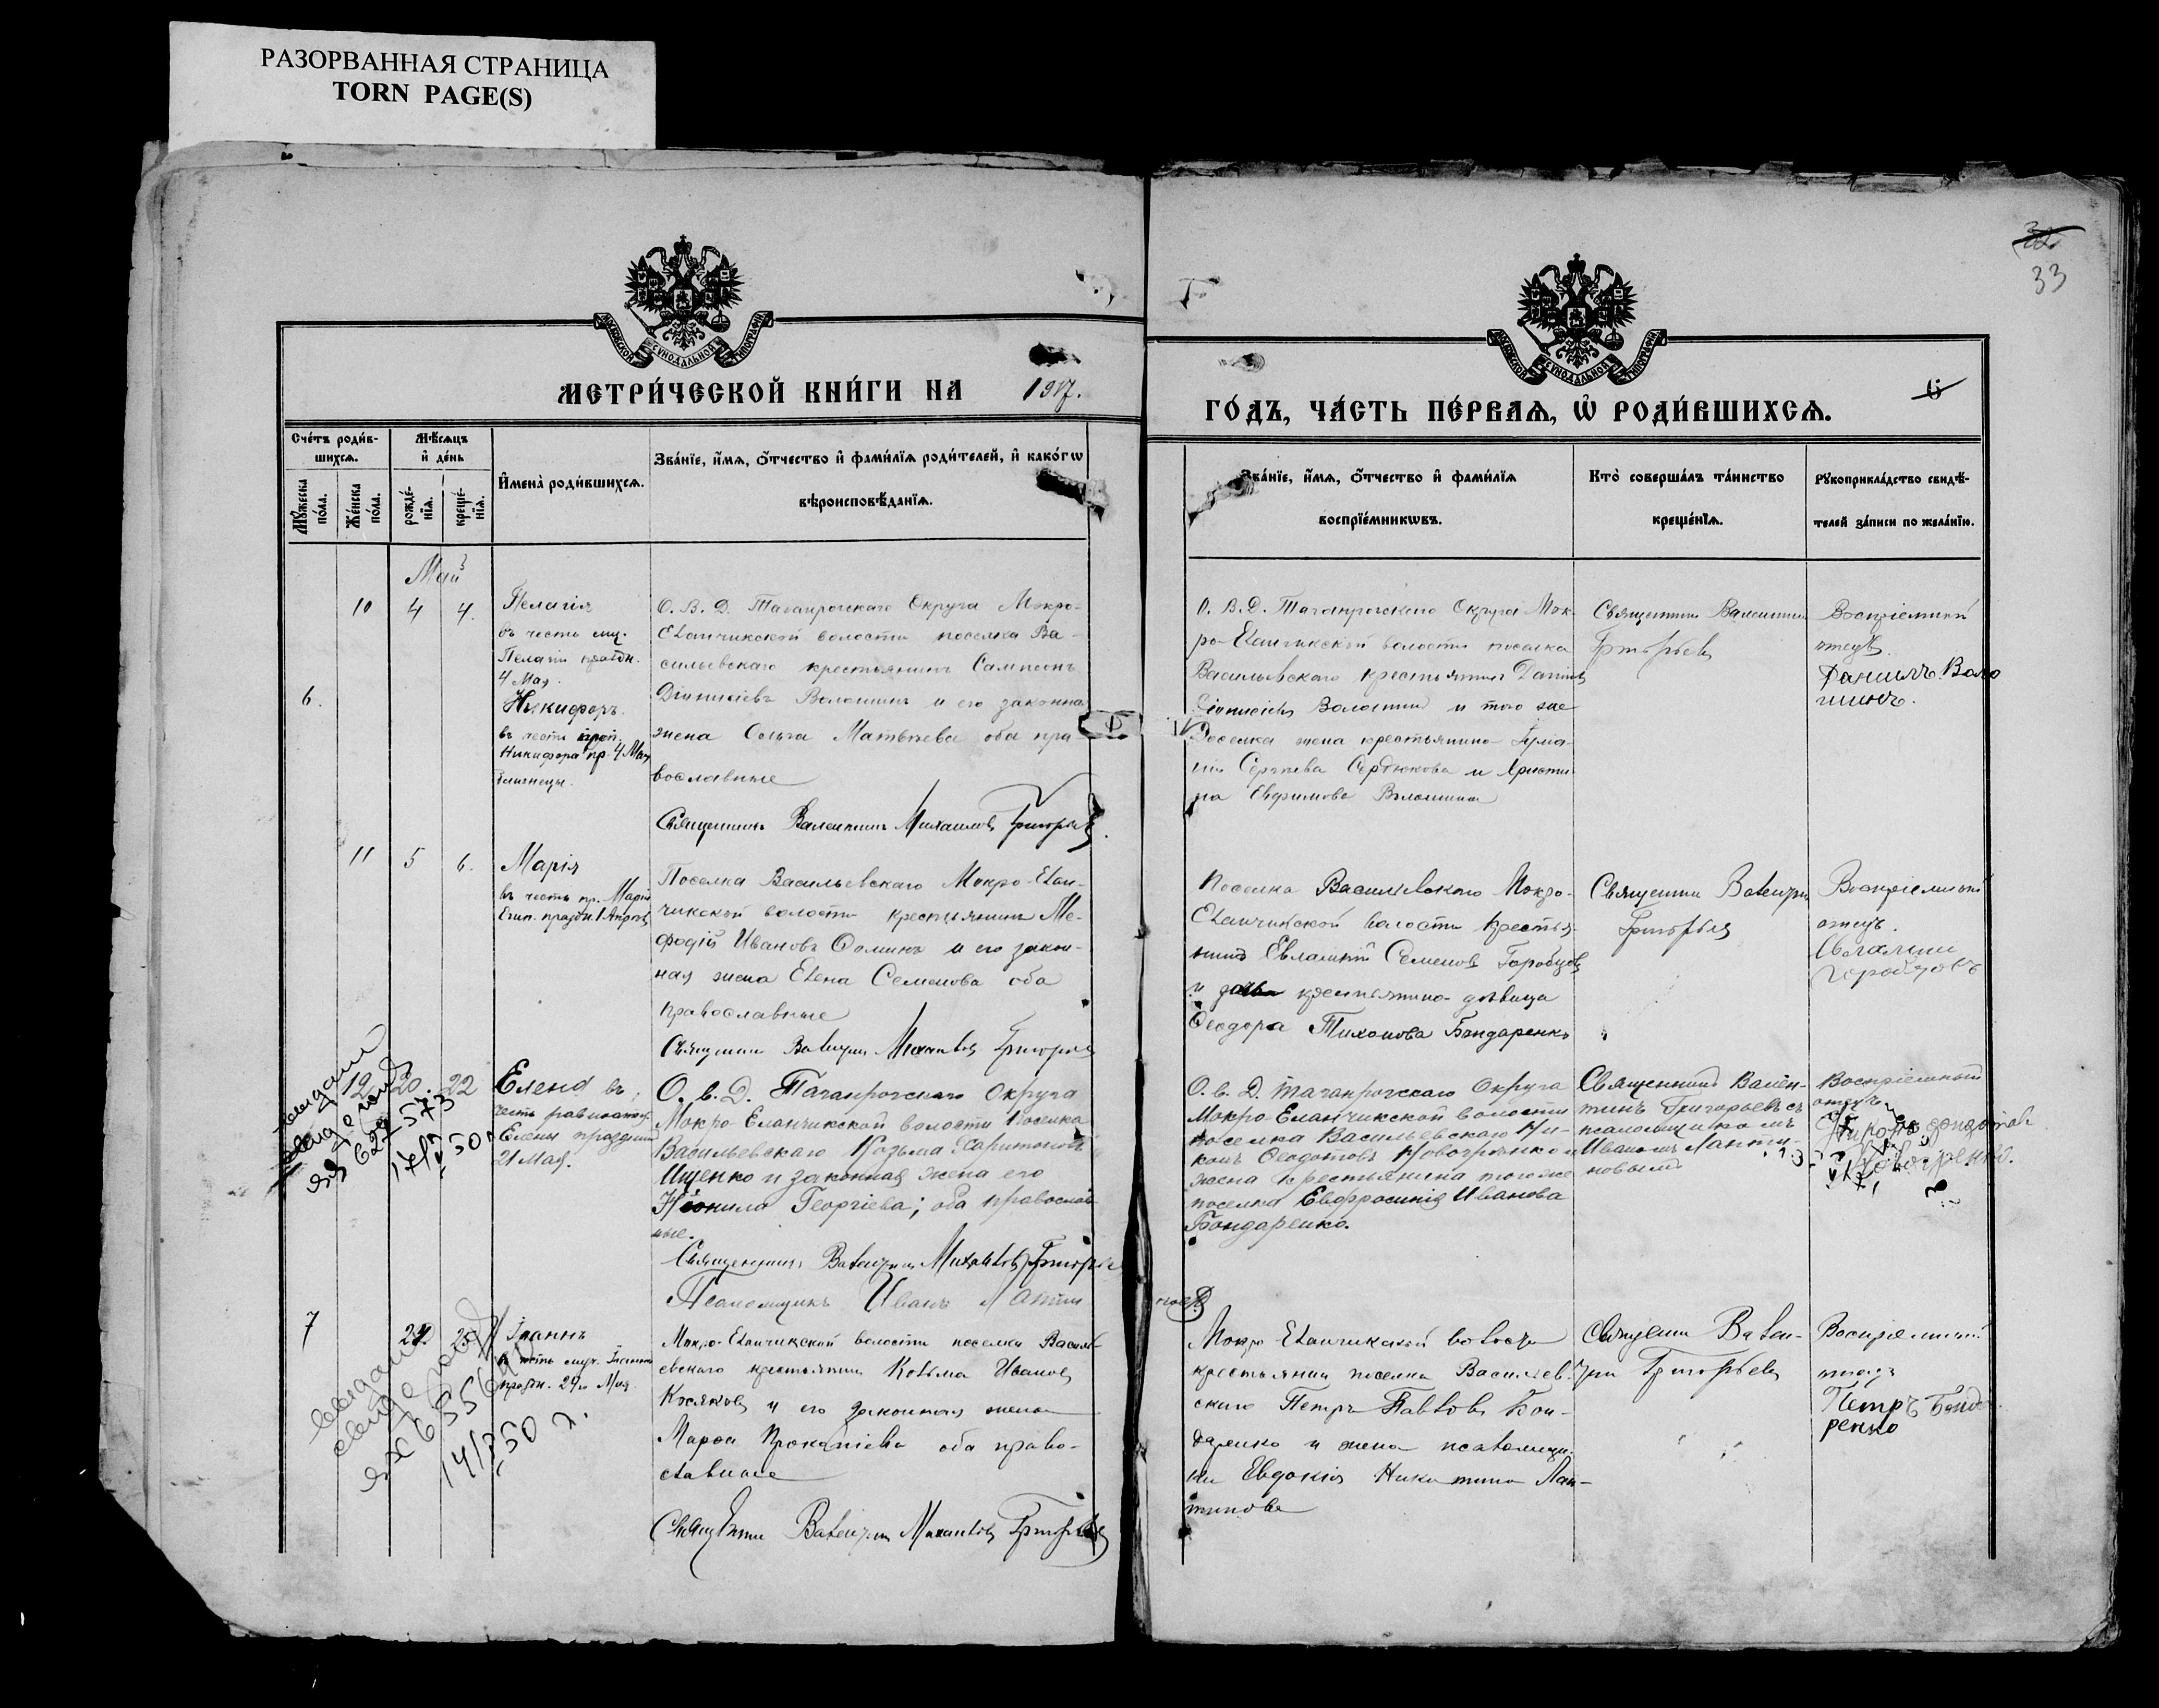 РАЗОРВАННАЯ СТРАНИЦА
TORN PAGE(S)
32
33
МОСКОВСКОЙ СѴНОДАЛЬНОЙ ТИПОГРАФІИ
МОСКОВСКОЙ СѴНОДАЛЬНОЙ ТИПОГРАФІИ
МЕТРИ́ЧЕСКОЙ КНИ́ГИ НА 1917.
ГО́ДЪ, ЧА́СТЬ ПЕ́РВАѦ, Ѡ҆ РОДИ́ВШИХСѦ.
6
Сче́тъ роди́в-
шихсѧ.
Мѣ́сѧцъ
и҆ де́нь
Мꙋ́жеска
по́ла.
Же́нска
по́ла.
рожде́-
нїѧ.
креще́-
нїѧ.
И҆мена̀ роди́вшихсѧ.
Зва́нїе, и҆́мѧ, ѻ҆́тчество и҆ фами́лїѧ роди́телей, и҆ како́гѡ
вѣроисповѣ́данїѧ.
Зва́нїе, и҆́мѧ, ѻ҆́тчество и҆ фами́лїѧ
воспрїе́мникѡвъ.
Кто̀ соверша́лъ та́инство
креще́нїѧ.
Рꙋкоприкла́дство свидѣ́-
телей за́писи по жела́нїю.
Май
10 4 4.
Пелагія
въ честь муч.
Пелагіи праздн.
4 Мая.
6.
Никифоръ.
въ честь преп.
Никифора пр. 4 Мая
близнецы.
О. В. Д. Таганрогскаго Округа Мокро-
Еланчикской волости поселка Ва-
сильевскаго крестьянинъ Сампсонъ
Діонисіевъ Волошинъ и его законная
жена Ольга Матвѣева оба пра-
вославные
Священникъ Валентинъ Михаиловъ Григорьевъ.
О. В. Д. Таганрогскаго Округа Мок-
ро-Еланчикской волости поселка
Васильевскаго крестьянинъ Даніилъ
Діонисіевъ Волошинъ и того же
поселка жена крестьянина
Сергѣева Сердюкова и Христи-
на Евфимова Волошина
Священникъ Валентинъ
Григорьевъ
Воспріемный
отецъ.
Данилъ Воло
шинъ.
11 5 6.
Марія
въ честь пр. Маріи
Егип. праздн. 1 Апрѣля
Поселка Васильевскаго Мокро-Елан-
чикской волости крестьянинъ Ме-
фодій Ивановъ Ѳоминъ и его закон-
ная жена Елена Семенова оба
православные
Священникъ Валентинъ Михаиловъ Григорьевъ
Поселка Васильевскаго Мокро-
Еланчикской волости крестья-
нинъ Евлампій Семеновъ Горобцовъ
и крестьянина дѣвица
Ѳеодора Тихонова Бондаренко
Священникъ Валентинъ
Григорьевъ
Воспріемный
отецъ.
Горобцовъ
12 20. 22
Елена въ
честь равноапост.
Елены праздник
21 Мая.
О. в. Д. Таганрогскаго Округа
Мокро-Еланчикской волости поселка
Васильевскаго Козьма Харитоновъ
Ищенко и законная жена его
Неонила Георгіева; оба православ
ные.
Священникъ Валентинъ Михаиловъ Григорьевъ
Псаломщикъ Иванъ Лантин
О. в. Д. Таганрогскаго Округа
Мокро-Еланчикской волости
поселка Васильевскаго Ни-
конъ Ѳеодотовъ и
жена крестьянина того же
поселка Евфросинія Иванова
Бондаренко.
Священникъ Вален-
тинъ Григорьевъ съ
псаломщикомъ
Иваномъ Лантин-
новымъ
Воспріемный
отецъ
выдано
7 22 25
Іоаннъ
въ честь муч. Іоанна
праздн. 29го Мая
Мокро-Еланчикской волости поселка Василь-
евскаго крестьянинъ Козьма Ивановъ
Косяковъ и его законная жена
Марѳа Прокопіева оба право-
славные
Священникъ Валентинъ Михаиловъ Григорьевъ
Мокро-Еланчикской волости
крестьянинъ поселка Васильев-
скаго Петръ Павловъ Бон-
даренко и жена псаломщи-
ка Евдокія Никитина Лан-
тинова
Священникъ Вален-
тинъ Григорьевъ
Воспріемный
отецъ
Петръ Бонда
ренко
выдано
14/X 50 г.